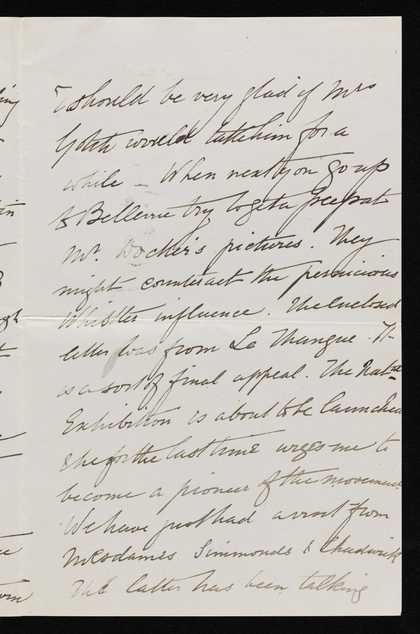 I should be very glad if Mrs
Gotch would take him for a
while – When next you go up
to Bellevue try to get a peep at
Mr. Docker's pictures. They
might counteract the pernicious
Whistler influence. The Enclosed
letter was from La Thangue. It
is a sort of final appeal. The Natnl
Exhibition is about to be launched
& he for the last time urges me to
become a pioneer of the movement
We have just had a visit from
Mesdames Simmonds & Chadwick
The latter has been talking